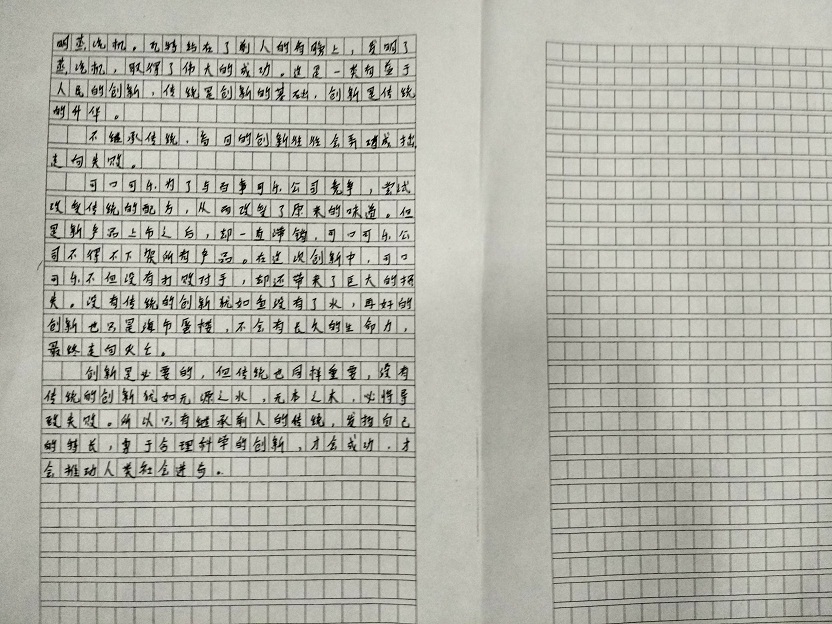 明蒸汽机。瓦特站在了前人的肩膀上，发明了
蒸汽机，取得了伟大的成功。这是一类有益于
人民的创新，传统是创新的基础，创新是传统
的升华。
不继承传统，盲目的创新往往会弄巧成拙，
走向失败。
可口可乐为了与百事可乐公司竞争，尝试
改变传统的配方，从而改变了原来的味道。但
是新产品上市之后，却一直滞销，可口可乐公
司不得不下架所有产品。在这次创新中，可口
可乐不但没有打败对手，却还带来了巨大的损
失。没有传统的创新就如鱼没有了水，再好的
创新也只是海市蜃楼，不会有长久的生命力，
最终走向灭亡。
创新是必要的，但传统也同样重要，没有
传统的创新就如无源之水，无本之木，必将导
致失败。所以只有继承前人的传统，发挥自己
的特长，勇于合理科学的创新，才会成功，才
会推动人类社会进步。